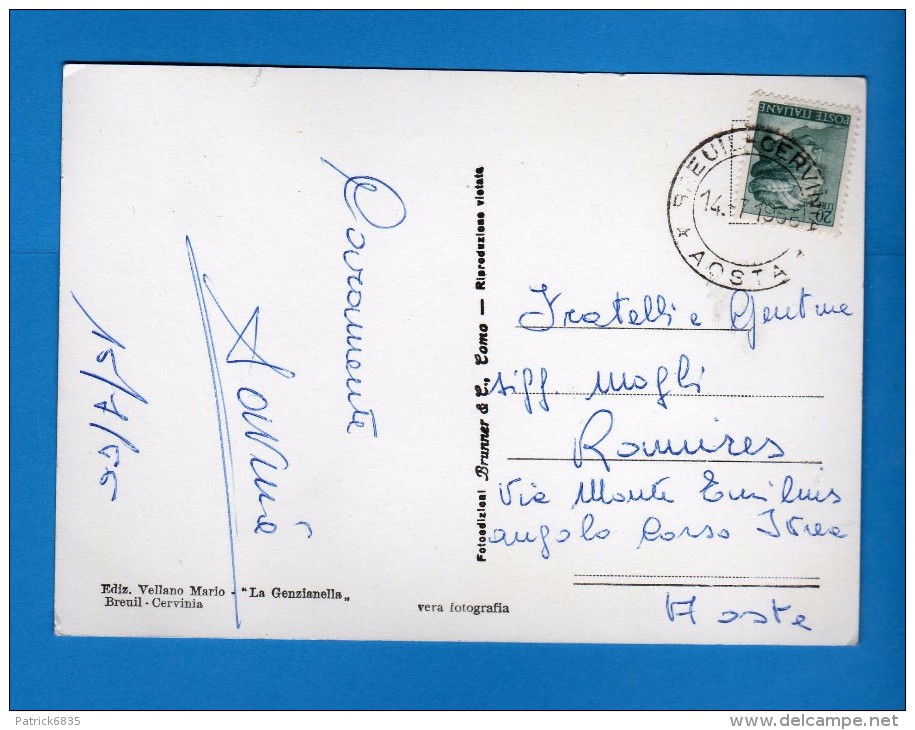 Caramente
15/7/66
Ediz. Vellano Mario - "La Genzianella"
Breuil - Cervinia
vera fotografia
Fotoedizioni Brunner & C., Como — Riproduzione vietata
POSTE ITALIANE
BREUIL-CERVINIA
14.7.196
AOSTA
Fratelli e Gentme
sigg. mogli
Ramires
Via Monte Emilius
angolo Corso Ivrea
Aosta
Patrick6835
delcampe.net